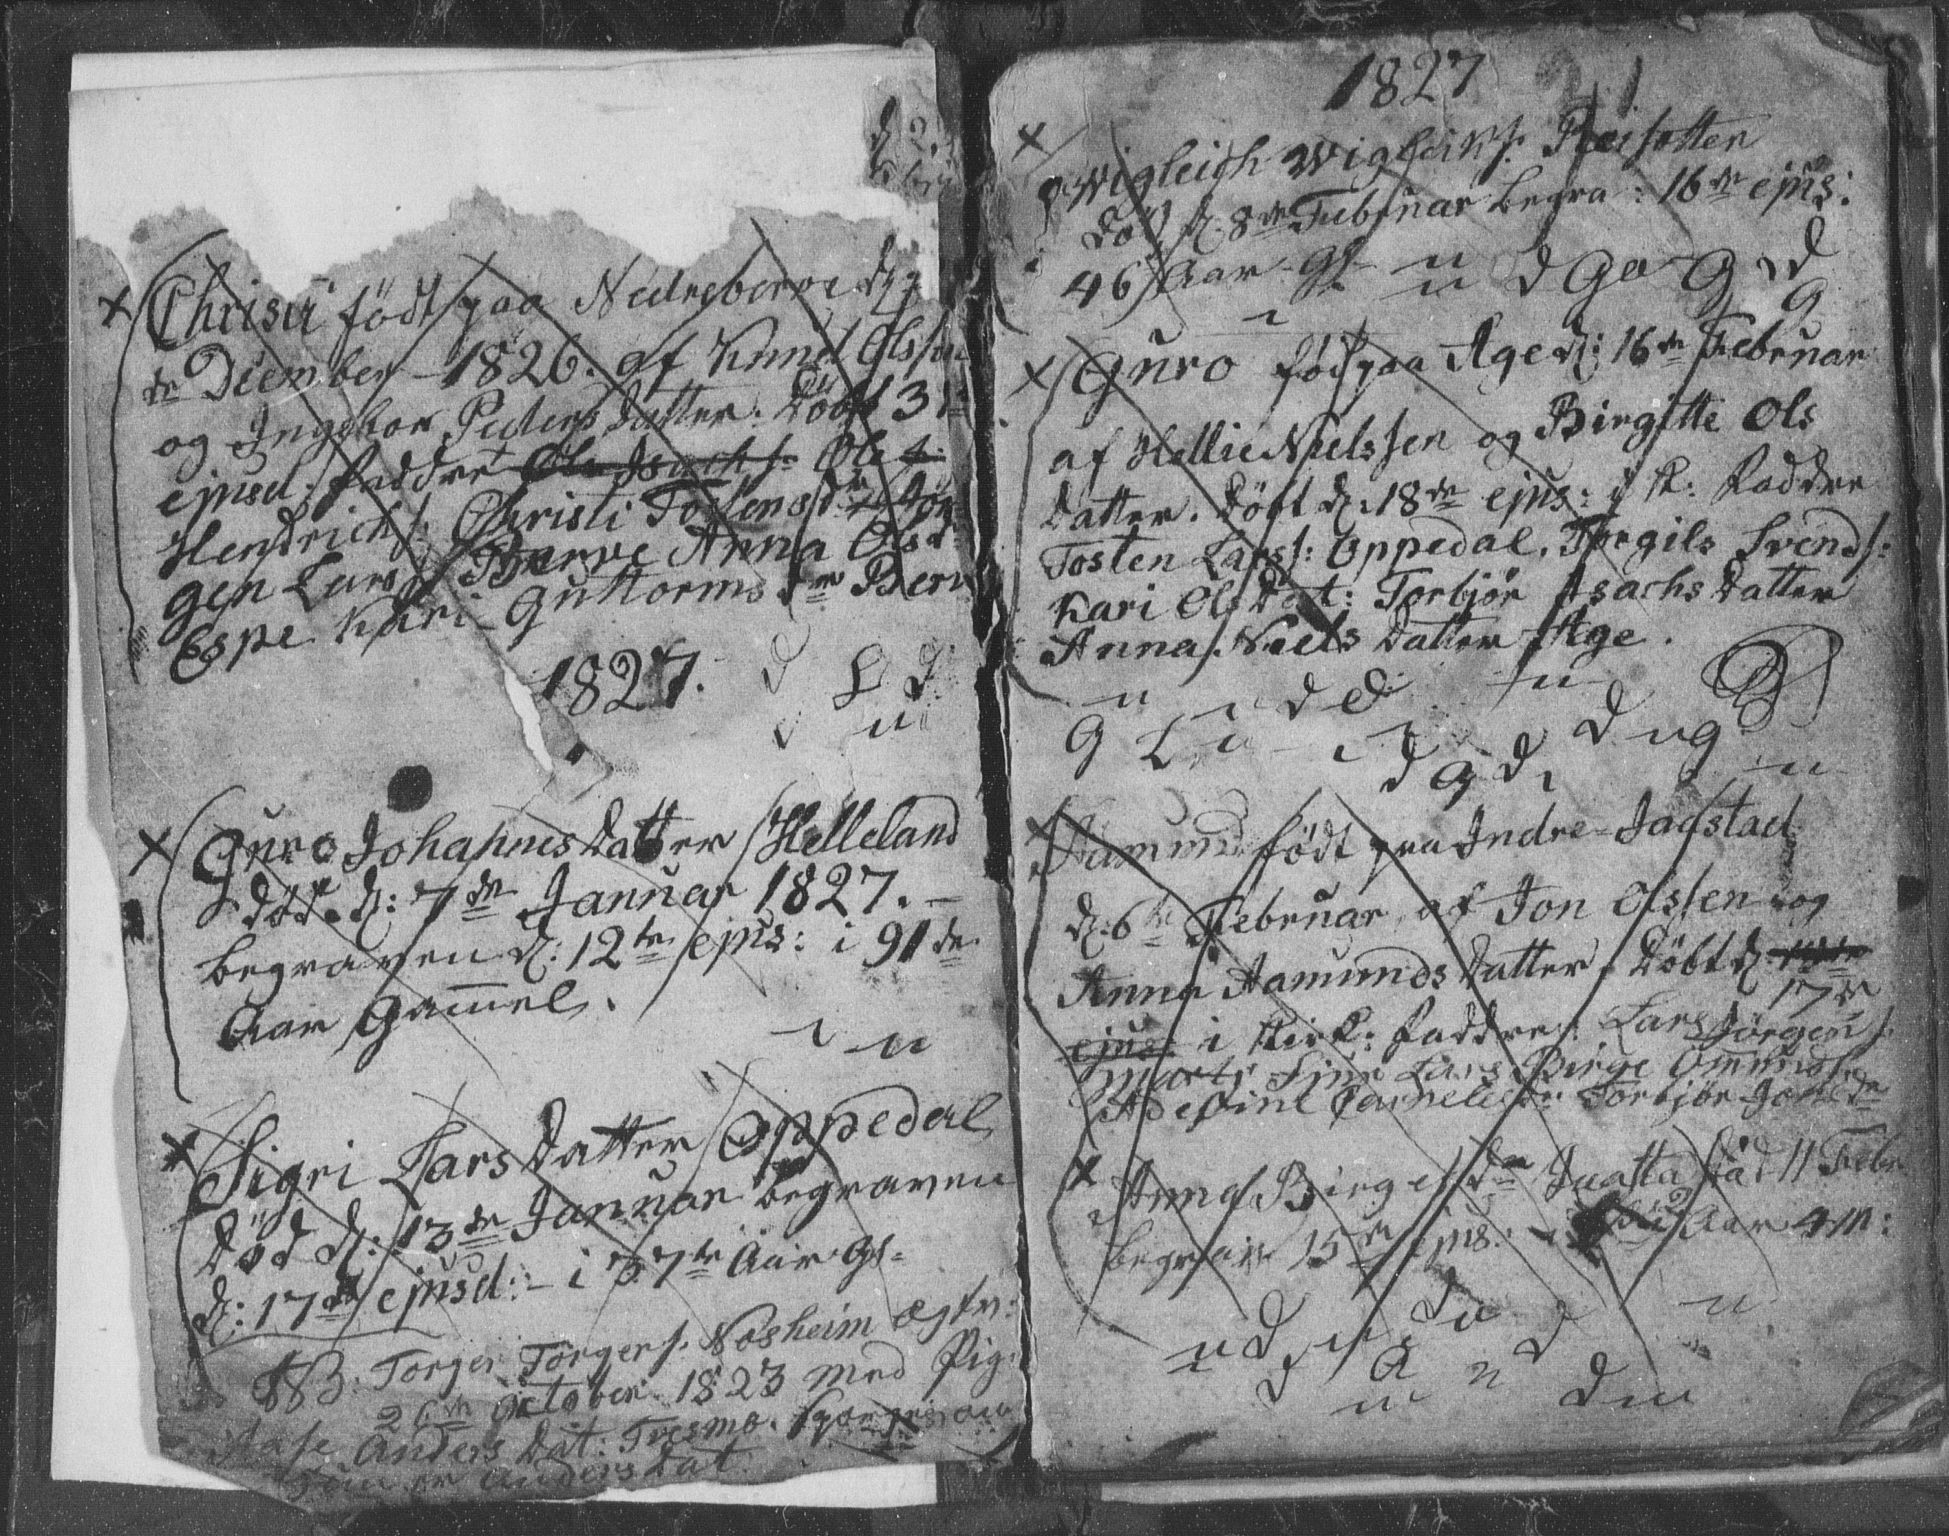 Christi födt paa Nedreberve d:
de Diember 1826. af Knud Olssen
og Ingebor Peders Datter. Döbt 31te
ejusd: faddre Ole Isachs: Ole
Hendrichs: Christi Tostensdr Jör-
gen Lars: Berve Anna Olsd:
Espe Kari Guttorms dr Berv
1827.
d L d
u
Guro Johannes Datter Helleland
död d: 7de Januar 1827. –
begraven d: 12te ejus: i 91de
Aar Gam̅el.
Sigri Lars Datter Oppedal
Död d: 13de Januar begraven
d: 17de ejusd: – i 37te Aar Gl-
NB. Torger Torgers: Nosheim Egtv:
26de October 1823 med Pig:
Aase Anders Dat: Tresmo.
Som er Anders Dat.
1827
Wigleich Wigleiks:
död d: 8de Februar begra: 16de ejus:
46 Aar Gl – u d G a G d
G
Guro föd paa Age d: 16de Februar
af Hellie Nielssen og Birgitte Ols
Datter. Döbt d: 18de ejus: i K: Faddre
Tosten Lars: Oppedal. Torgils Svends:
Kari Ols Dat: Torbjör Isachs Datter
Anna Niels Datter Age.
u d d u
G L u d u g
d g d u
Aamund födt paa Indre Jaastad
d: 6te Februar af Jon Olssen og
Anna Aamunds Datter. Döbt d:
17de
ejus: i Kirk: Faddre: Lars Jörgens:
Lars Birge Ommunds:
Torbjör Jonsdr
Anna Birgesdr Jaatta död 11 Febr
begrav 15de ejus: i Aar 4 M:
u d u d u d u
d a n d u
u